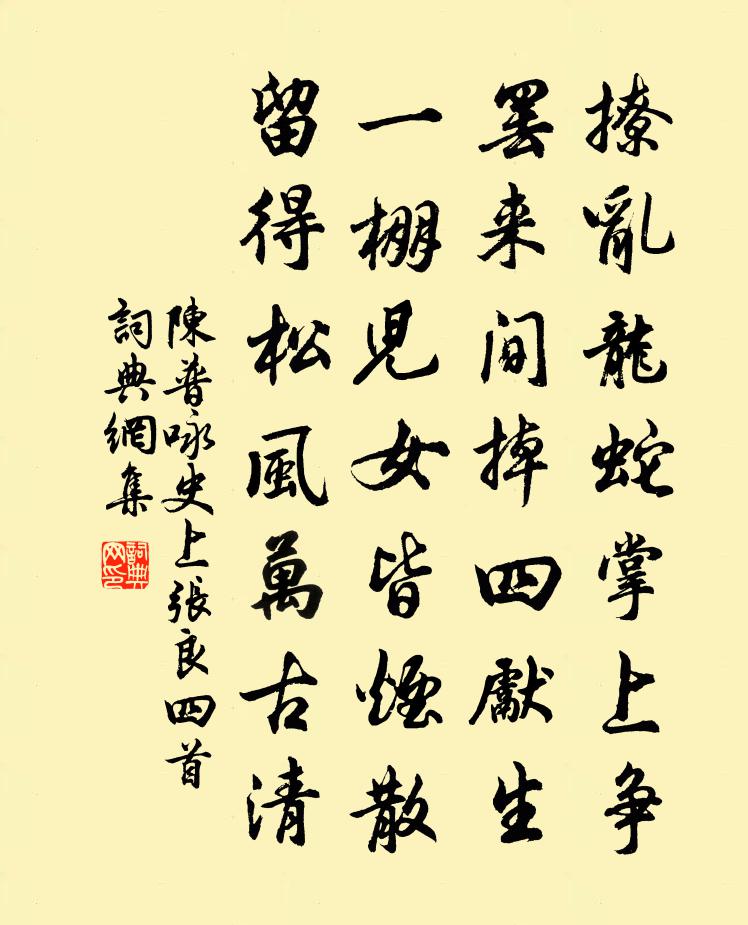 撩亂龍蛇掌上争
罢来间掉四獻生
一棚児女皆煙散
留得松風萬古清
陳普咏史上張良四首
詞典網集
詞典网印